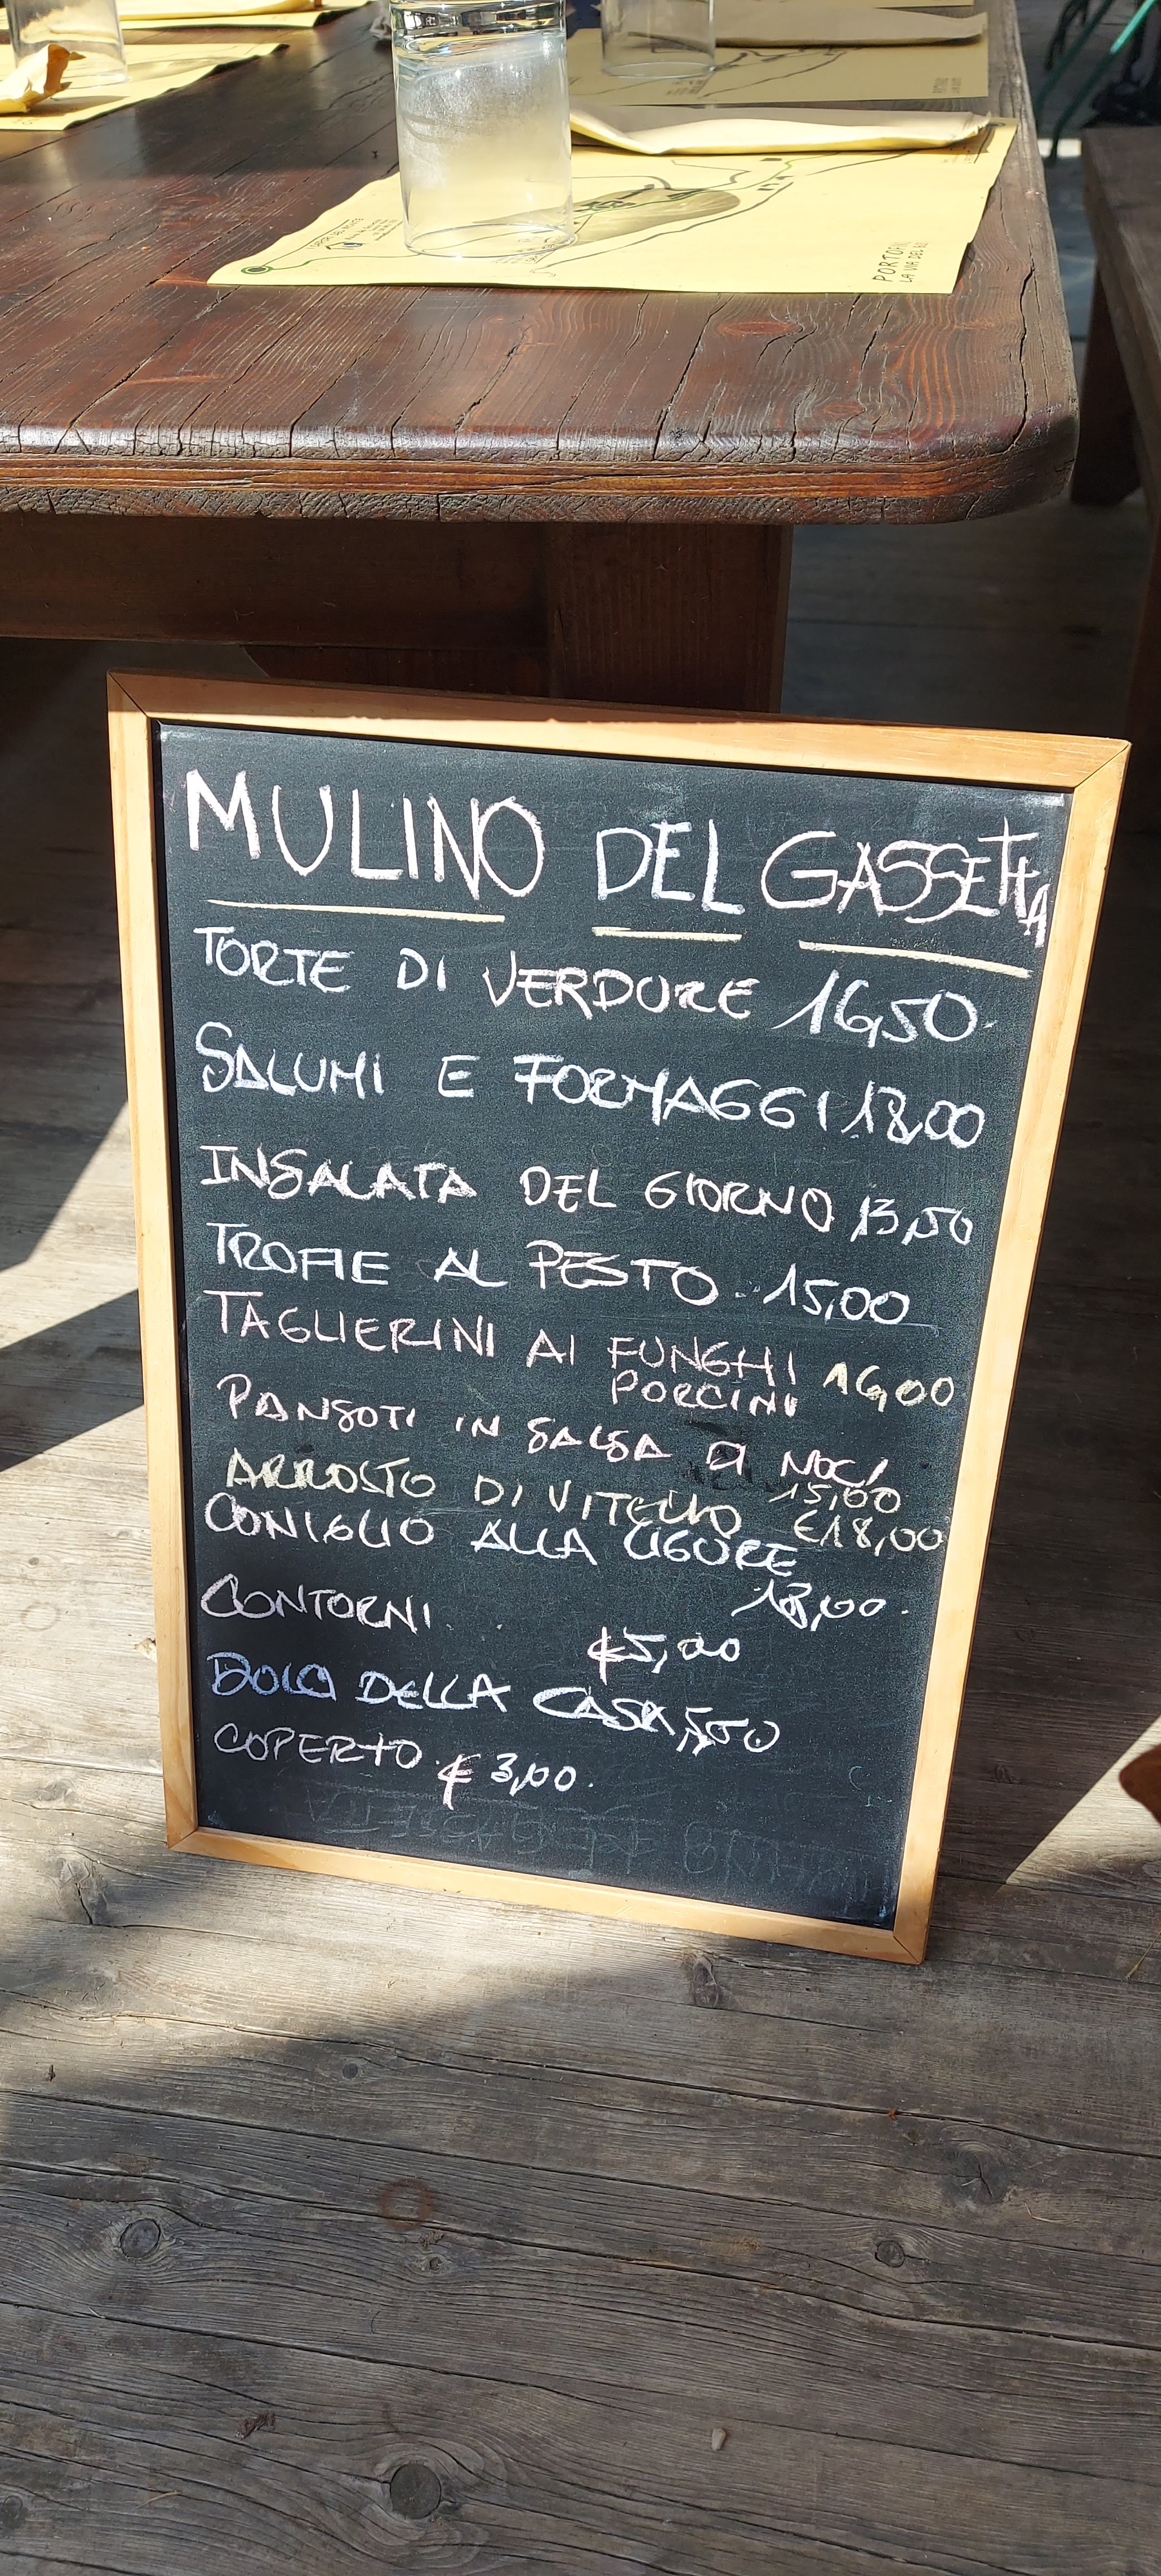 PORTOFINO
LA VIA DEL
MULINO DEL GASSETTA
TORTE DI VERDURE 16,50
SALUMI E FORMAGGI 18,00
INSALATA DEL GIORNO 13,50
TROFIE AL PESTO 15,00
TAGLIERINI AI FUNGHI 16,00
PORCINI
PANSOTI IN SALSA DI NOCI
15,00
ARROSTO DI VITELLO €18,00
CONIGLIO ALLA LIGURE
18,00
CONTORNI
€5,00
DOLCI DELLA CASA 5,50
COPERTO € 3,00